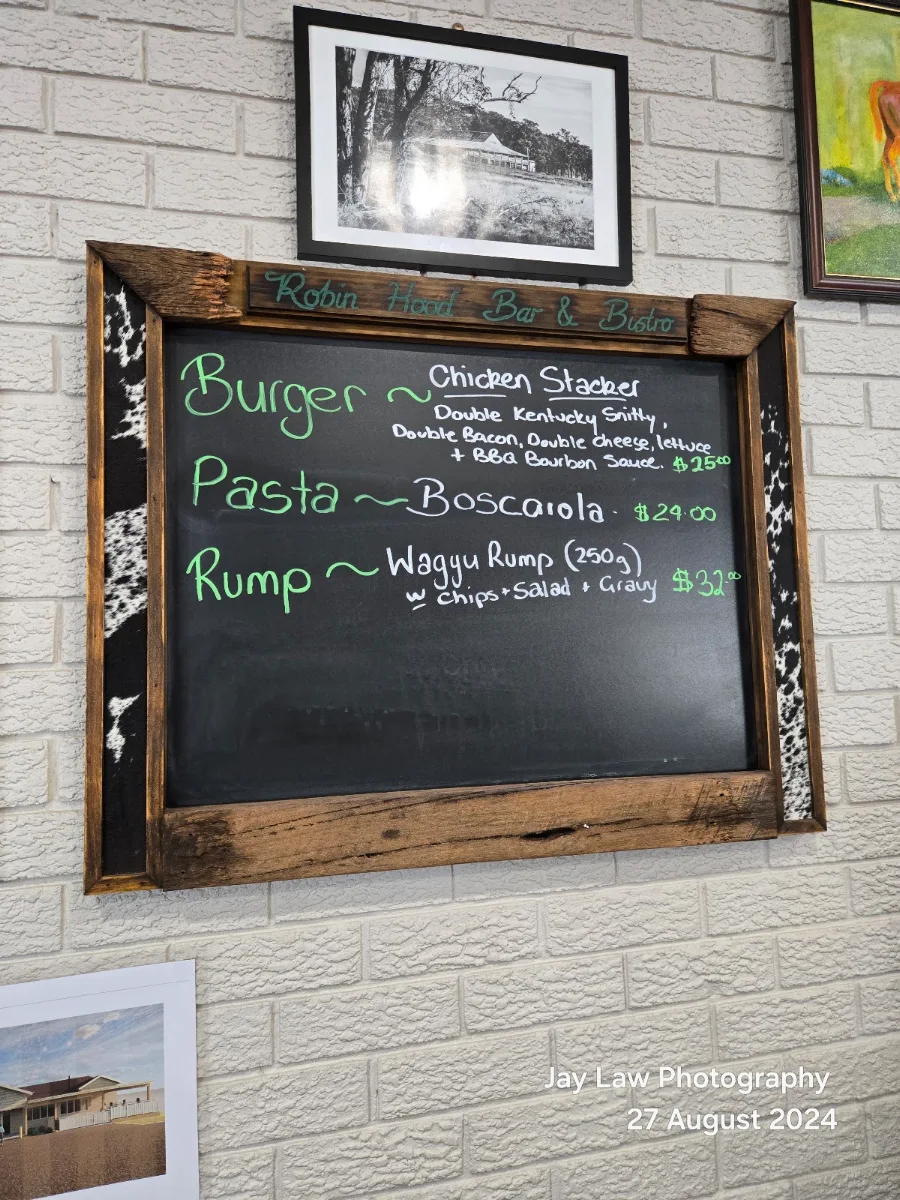 Robin Hood Bar & Bistro
Burger ~ Chicken Stacker
Double Kentucky Snitty,
Double Bacon, Double cheese, lettuce
+ BBQ Bourbon Sauce. $25.00
Pasta ~ Boscaiola. $24.00
Rump ~ Wagyu Rump (250g)
w chips + Salad + Gravy $32.00
Jay Law Photography
27 August 2024